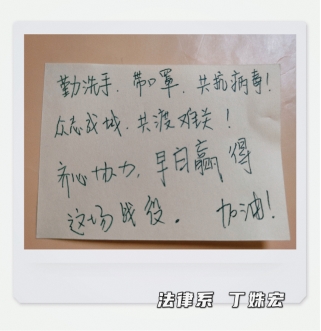 勤洗手，带口罩，共抗病毒！
众志成城，共渡难关！
齐心协力，早日赢得
这场战役。 加油！
法律系 丁姝宏